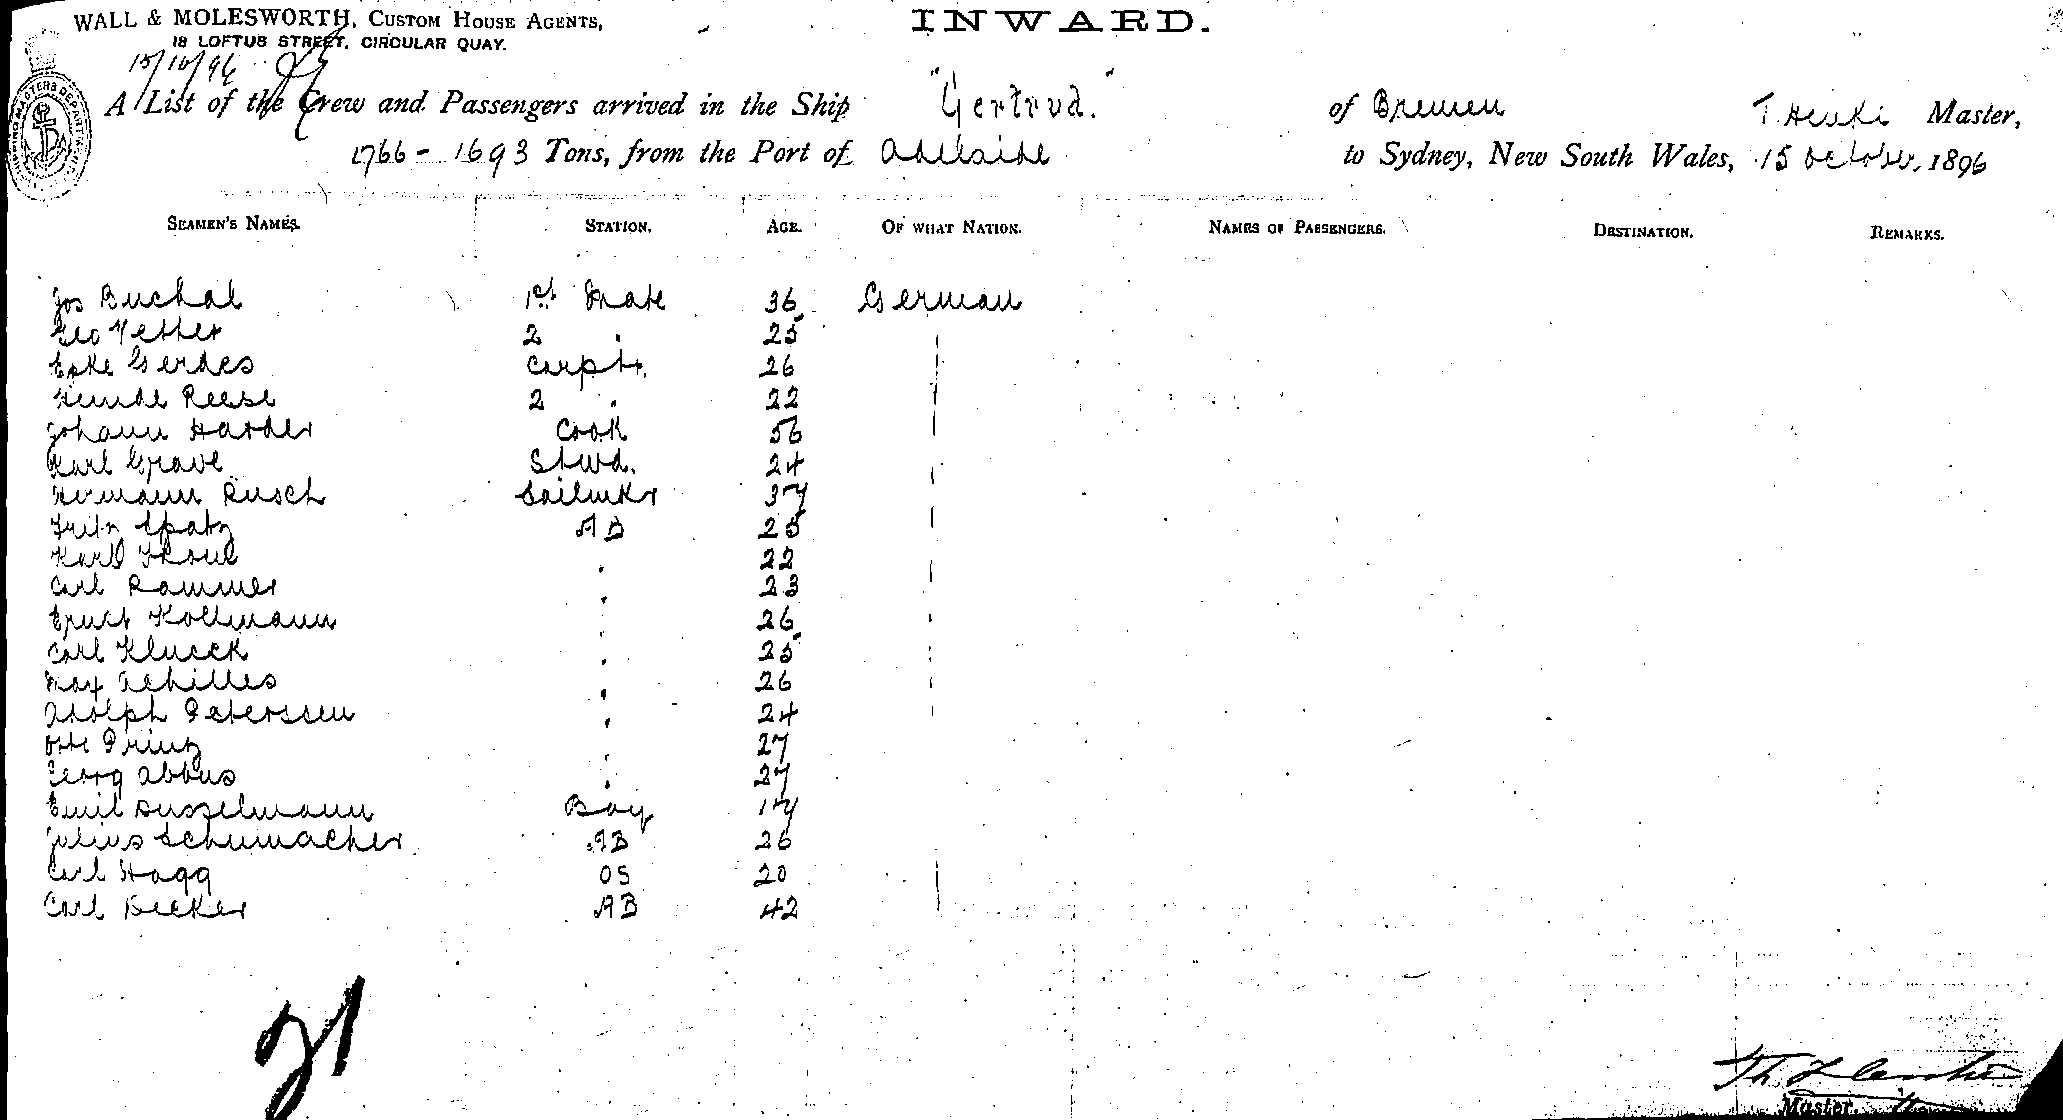 WALL & MOLESWORTH, CUSTOM HOUSE AGENTS,
18 LOFTUS STREET, CIRCULAR QUAY.
INWARD.
15/10/96
A List of the Crew and Passengers arrived in the Ship "Gertrud." of Bremen T. Master,
1766 - 1693 Tons, from the Port of Adelaide to Sydney, New South Wales, 15 October, 1896
SEAMEN'S NAMES. STATION. AGE. OF WHAT NATION. NAMES OF PASSENGERS. DESTINATION. REMARKS.
Jos Buchal 1st Mate 36 German
Geo Vetter 2 " 25
Gerdes Carptr. 26
Reese 2 " 22
Johann Harder Cook 56
Karl Grave Stwd. 24
Hermann Rusch Sailmkr 37
Fritz Spatz AB 25
Karl " 22
Carl Rammer " 23
Ernst Kollmann " 26
Carl Klueck " 25
Max Achilles " 26
Adolph Peterssen " 24
Otto Prinz " 27
Georg Abbus " 27
Emil Busselmann Boy 17
Julius Schumacher AB 26
Carl Hagg OS 20
Carl Becker AB 42
21
Master.